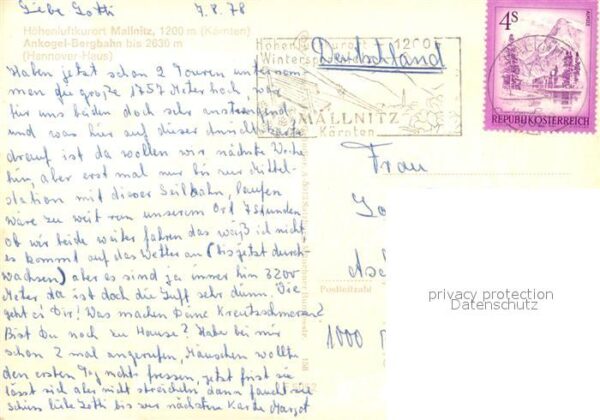 Liebe Lotti 7.8.78
Höhenluftkurort Mallnitz, 1200 m (Kärnten)
Ankogel-Bergbahn bis 2630 m
(Hannover-Haus)
Haben jetzt schon 2 Touren unternom
men die große 1757 Meter hoch, war
für uns beiden doch sehr anstrengend
und was hier auf dieser Ansichtskarte
drauf ist da wollen wir nächste Woche
hin, aber erst mal nur bis zur Mittel-
station mit dieser Seilbahn, laufen
wäre zu weit von unserem Ort 7 Stunden
ob wir beide weiter fahren das weiß ich nicht
es kommt auf das Wetter an (bis jetzt durch
wachsen) aber es sind ja immer hin 3200
Meter da ist doch die Luft sehr dünn. Wie
geht es Dir? Was machen Deine Kreutzschmerzen?
Bist Du noch zu Hause? Habe bei mir
schon 2 mal angerufen, Mäuschen wollte
den ersten Tag nichts fressen, jetzt frist sie
lässt sich aber nicht streicheln dann faucht sie
schön liebe Lotti bis zur nächsten Karte Margot
Höhenluftkurort 1200
Wintersp
MALLNITZ
Kärnten
Deutschland
4S
REPUBLIK ÖSTERREICH
Frau
Lo
Asch
Postleitzahl
1000
158
privacy protection
Datenschutz